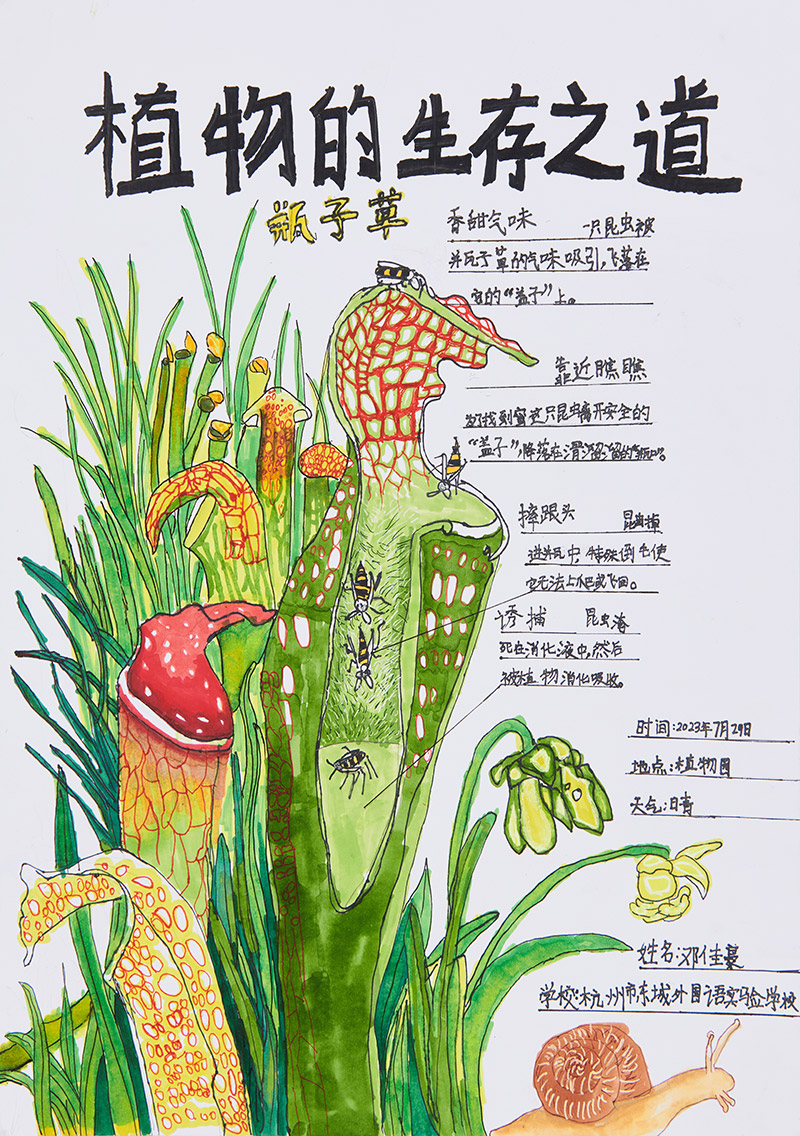 植物的生存之道
瓶子草
香甜气味 一只昆虫被
瓶子草的气味吸引,飞落在
它的“盖子”上。
靠近瞧瞧
为了找到蜜这只昆虫离开安全的
“盖子”,降落在滑溜溜的“瓶口”。
摔跟头 昆虫掉
进瓶中,特殊倒毛使
它无法上爬或飞回。
诱捕 昆虫淹
死在消化液中,然后
被植物消化吸收。
时间:2023年7月29日
地点:植物园
天气:晴
姓名:邓佳蔓
学校:杭州市东城外国语实验学校